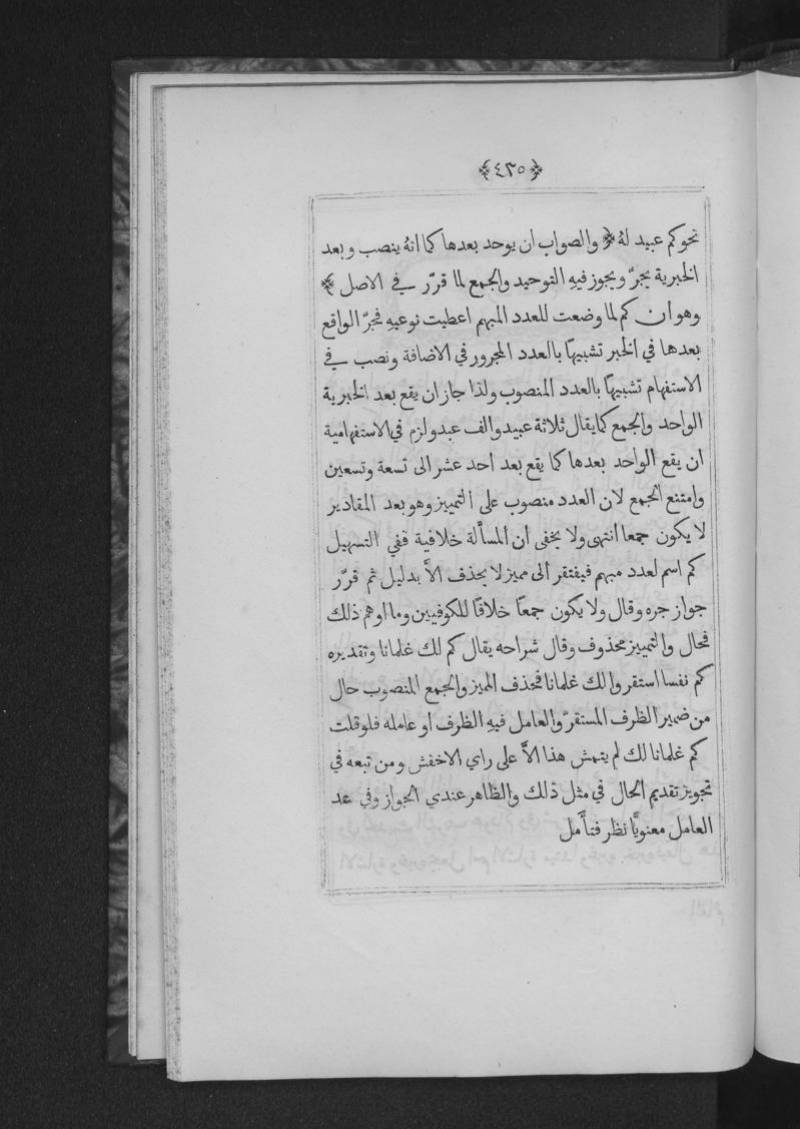 ﴿٤٣٥﴾
نحو كم عبيد لهُ ﴿ والصواب ان يوحد بعدها كما انهُ ينصب وبعد
الخبرية يجرّ ويجوز فيهِ التوحيد والجمع لما قرّر في الاصل ﴾
وهو ان كم لما وضعت للعدد المبهم اعطيت نوعيهِ فجرّ الواقع
بعدها في الخبر تشبيهًا بالعدد المجرور في الاضافة ونصب في
الاستفهام تشبيهًا بالعدد المنصوب ولذا جاز ان يقع بعد الخبرية
الواحد والجمع كما يقال ثلاثة عبيد والف عبد ولزم في الاستفهامية
ان يقع الواحد بعدها كما يقع بعد احد عشر الى تسعة وتسعين
وامتنع الجمع لان العدد منصوب على التمييز وهو بعد المقادير
لا يكون جمعا انتهى ولا يخفى ان المسألة خلافية ففي التسهيل
كم اسم لعدد مبهم فيفتقر الى مميز لا يحذف الاَّ بدليل ثم قرّر
جواز جره وقال ولا يكون جمعًا خلافًا للكوفيين وما اوهم ذلك
فحال والتمييز محذوف وقال شراحه يقال كم لك غلمانا وتقديره
كم نفسا استقروا لك غلمانا فحذف المميز والجمع المنصوب حال
من ضمير الظرف المستقرّ والعامل فيهِ الظرف او عامله فلو قلت
كم غلمانا لك لم يتمش هذا الاَّ على راي الاخفش ومن تبعه في
تجويز تقديم الحال في مثل ذلك والظاهر عندي الجواز وفي عد
العامل معنويًّا نظر فتأمل